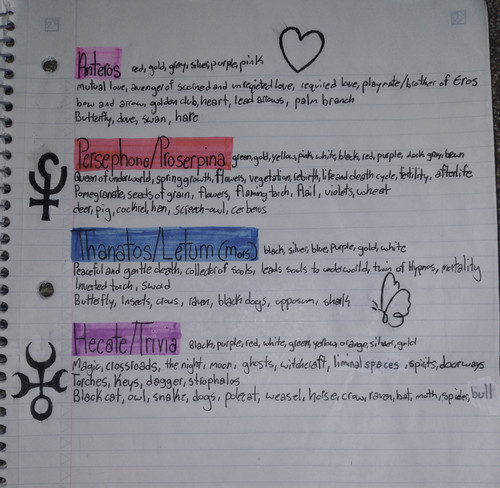 Anteros red, gold, gray, silver, purple, pink
mutual love, avenger of scorned and unrequited love, required love, playmate/brother of Eros
bow and arrow, golden club, heart, lead arrows, palm branch
Butterfly, dove, swan, hare
Persephone/Proserpina green, gold, yellow, pink, white, black, red, purple, dark gray, brown
Queen of underworld, spring growth, flowers, vegetation, rebirth, life and death cycle, fertility, afterlife
Pomegranate, seeds of grain, flowers, flaming torch, flail, violets, wheat
deer, pig, cockrel, hen, screech-owl, cerbeus
Thanatos/Letum (Mors) black, silver, blue, purple, gold, white
Peaceful and gentle death, collector of souls, leads souls to underworld, twin of Hypnos, mortality
Inverted torch, sword
Butterfly, Insects, crows, raven, black dogs, opposum, shark
Hecate/Trivia Black, purple, red, white, green, yellow, orange, silver, gold
Magic, crossroads, the night, moon, ghosts, witchcraft, liminal spaces, spirits, doorways
Torches, Keys, dagger, strophalos
Black cat, owl, snake, dogs, polecat, weasel, horse, crow, raven, bat, moth, spider, bull